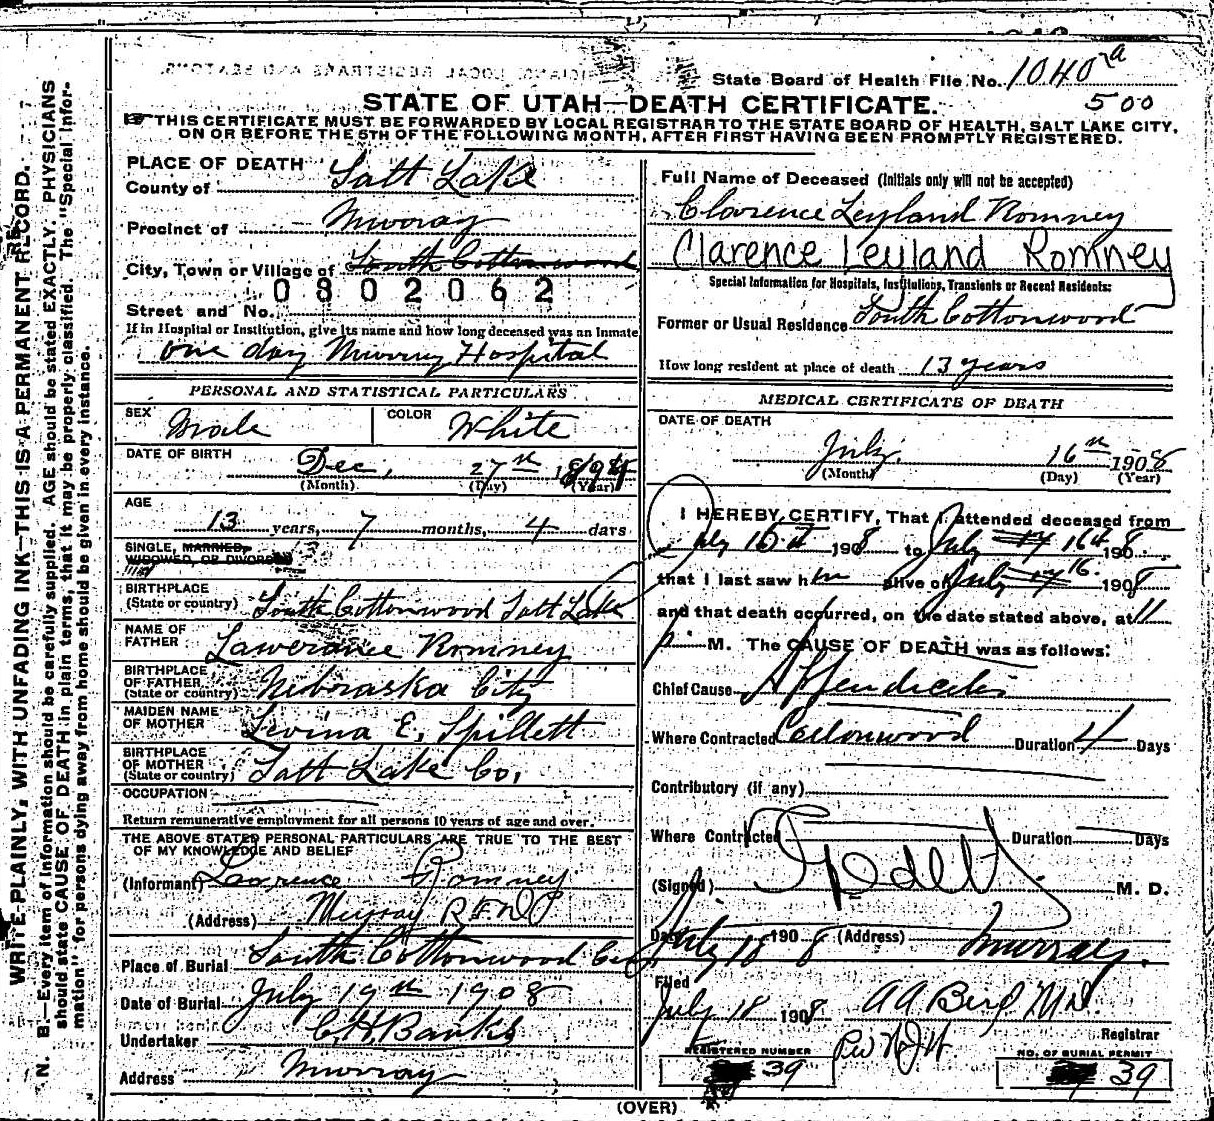 State Board of Health File No. 1040 a
500
STATE OF UTAH—DEATH CERTIFICATE.
THIS CERTIFICATE MUST BE FORWARDED BY LOCAL REGISTRAR TO THE STATE BOARD OF HEALTH, SALT LAKE CITY,
ON OR BEFORE THE 5TH OF THE FOLLOWING MONTH, AFTER FIRST HAVING BEEN PROMPTLY REGISTERED.
WRITE PLAINLY, WITH UNFADING INK—THIS IS A PERMANENT RECORD.
N. B.—Every item of information should be carefully supplied. AGE should be stated EXACTLY. PHYSICIANS
should state CAUSE OF DEATH in plain terms, that it may be properly classified. The "Special Infor-
mation" for persons dying away from home should be given in every instance.
PLACE OF DEATH
County of Salt Lake
Precinct of Murray
City, Town or Village of South Cottonwood
0802062
Street and No.
If in Hospital or Institution, give its name and how long deceased was an inmate
one day Murray Hospital
PERSONAL AND STATISTICAL PARTICULARS
SEX Male COLOR White
DATE OF BIRTH Dec, 27th
(Month) (Day) (Year)
AGE
13 years, 7 months, 4 days
SINGLE, MARRIED,
WIDOWED, OR DIVORCED
BIRTHPLACE
(State or country) South Cottonwood Salt Lake
NAME OF
FATHER Lawerance Romney
BIRTHPLACE
OF FATHER
(State or country) Nebraska City
MAIDEN NAME
OF MOTHER Levina E. Spillett
BIRTHPLACE
OF MOTHER
(State or country) Salt Lake Co,
OCCUPATION
Return remunerative employment for all persons 10 years of age and over.
THE ABOVE STATED PERSONAL PARTICULARS ARE TRUE TO THE BEST
OF MY KNOWLEDGE AND BELIEF
(Informant) Lawrence Romney
(Address) Murray R F D
Place of Burial South Cottonwood Cem
Date of Burial July 19th 1908
Undertaker C. H. Banks
Address Murray
Full Name of Deceased (Initials only will not be accepted)
Clarence Leyland Romney
Clarence Leyland Romney
Special Information for Hospitals, Institutions, Transients or Recent Residents:
Former or Usual Residence South Cottonwood
How long resident at place of death 13 years
MEDICAL CERTIFICATE OF DEATH
DATE OF DEATH
July. 16th 1908
(Month) (Day) (Year)
I HEREBY CERTIFY, That I attended deceased from
July 1908 to July 17 16th 1908
that I last saw him alive on July 17 16. 1908
and that death occurred, on the date stated above, at 11
p. M. The CAUSE OF DEATH was as follows:
Chief Cause Appendicitis
Where Contracted Cottonwood Duration 4 Days
Contributory (if any)
Where Contracted Duration Days
(Signed) M. D.
Date July 18 1908 (Address) Murray.
Filed
July 18 1908 A A Bird M.D.
Registrar
Per
REGISTERED NUMBER
39
NO. OF BURIAL PERMIT
39
(OVER)